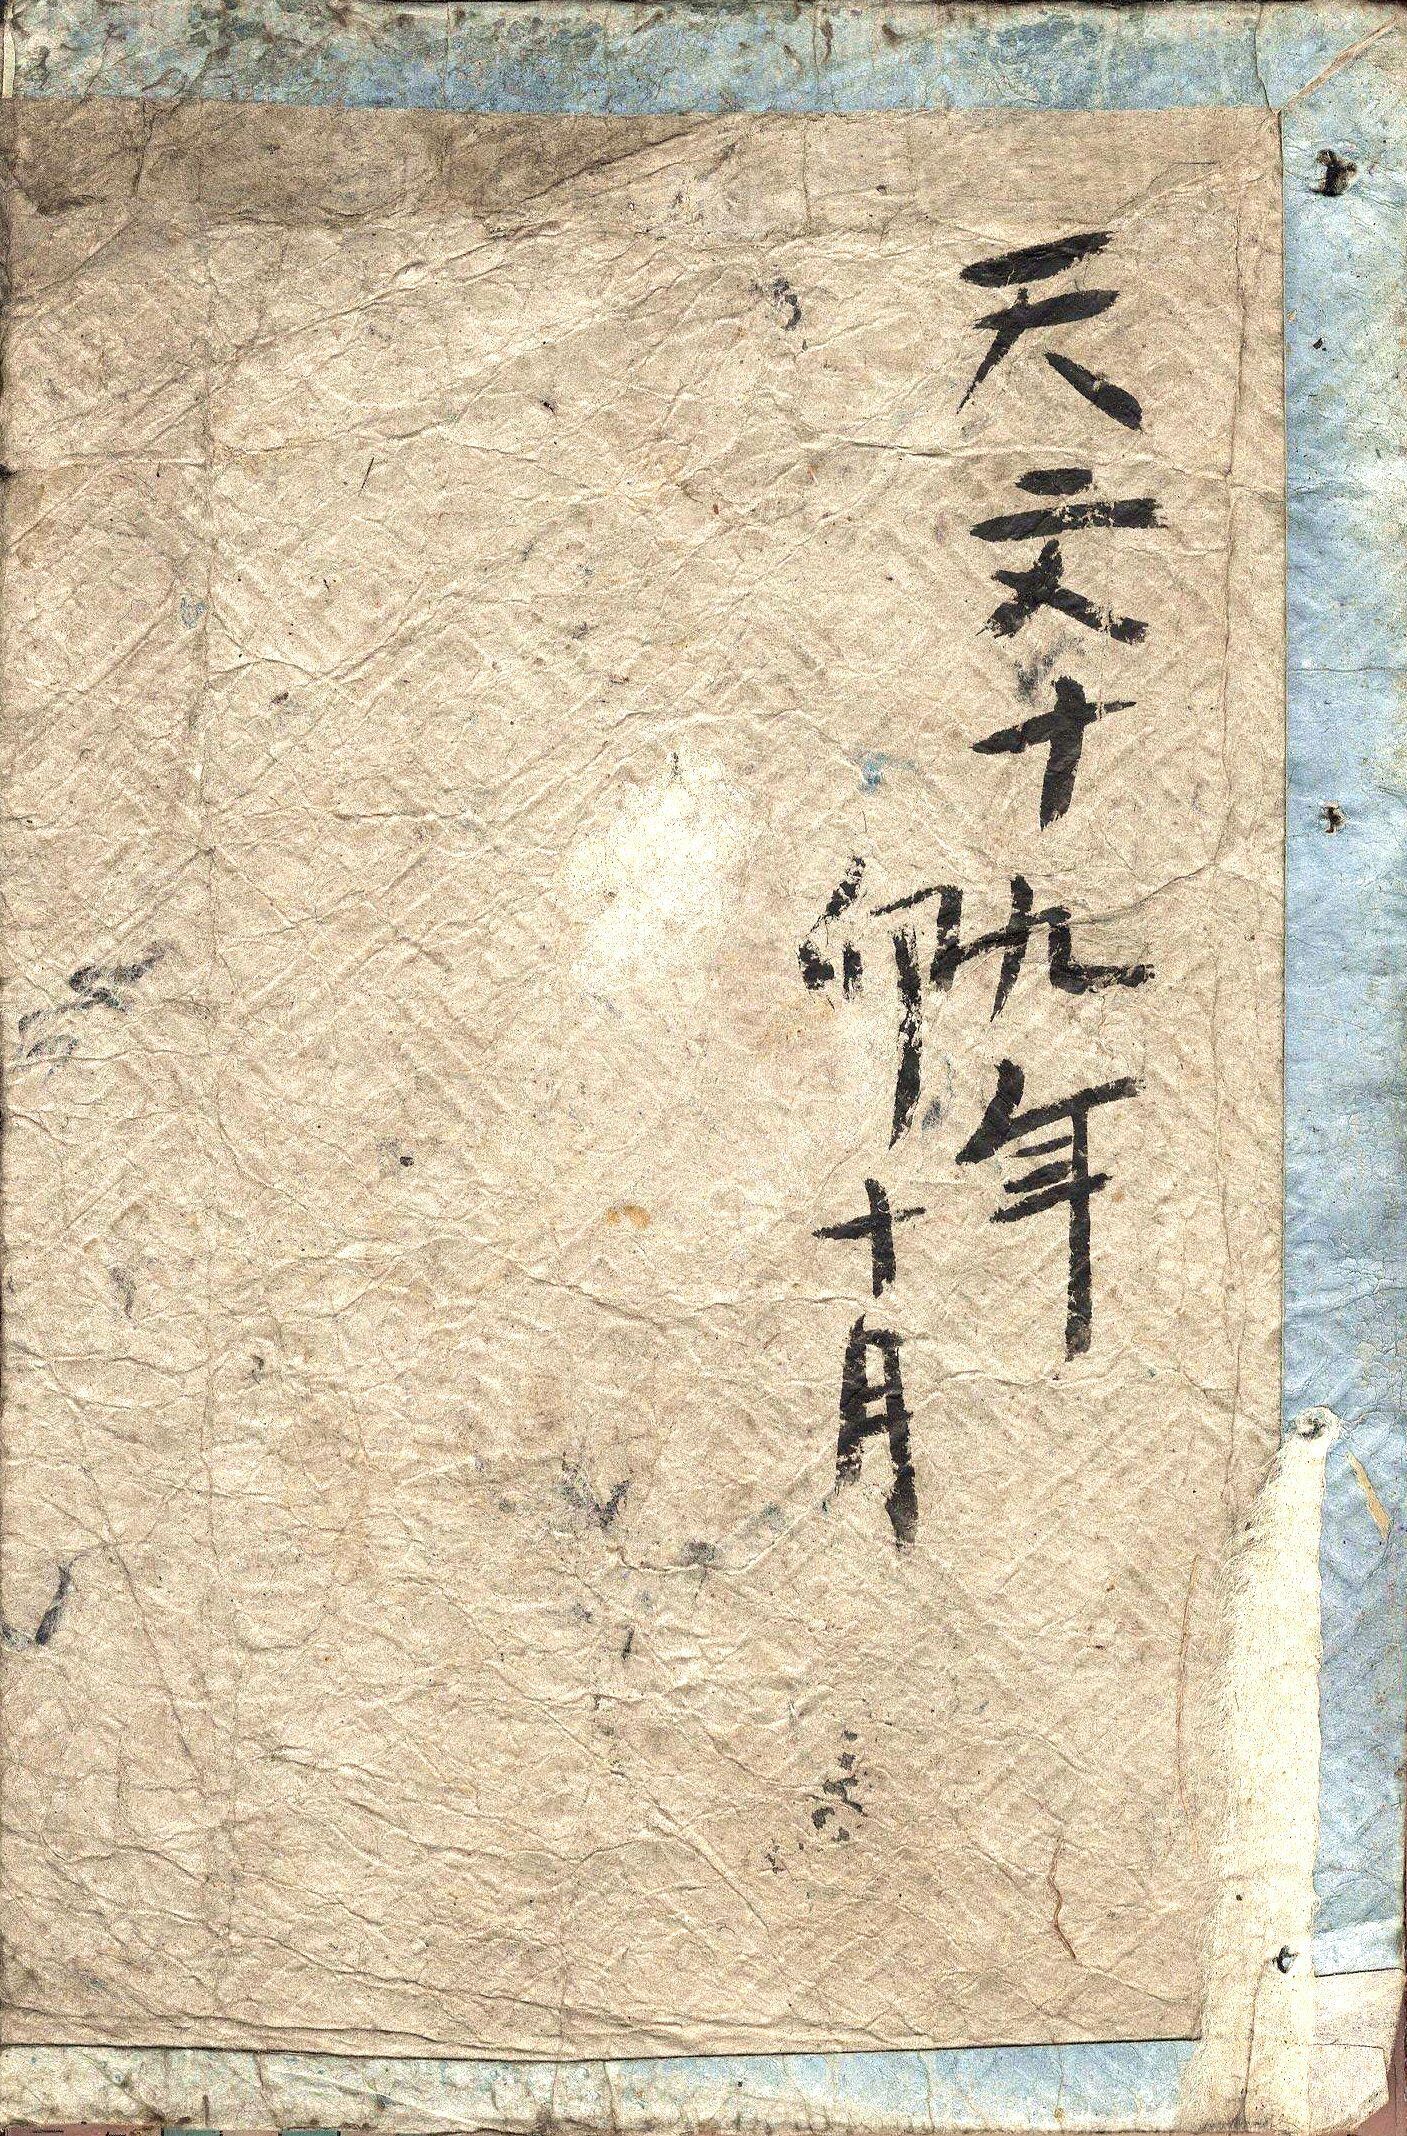 天文十九年
卯十月